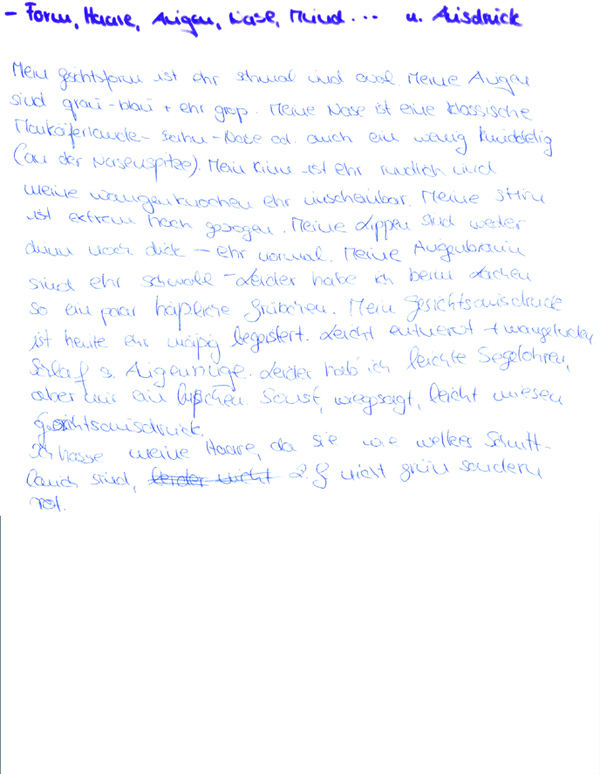 - Form, Haare, Augen, Nase, Mund... u. Ausdruck
Mein Gsichtsform ist ehr schmal und oval. Meine Augen
sind grau-blau + ehr groß. Meine Nase ist eine klassische
ein wenig knuddelig
(an der Nasenspitze). Mein Kinn ist ehr rundlich und
meine Wangenknochen ehr unscheinbar. Meine Stirn
ist extrem hoch gezogen. Meine Lippen sind weder
dünn noch dick - ehr normal. Meine Augenbraun
sind ehr schmall - Leider habe ich beim Lachen
so ein paar häßliche Grübchen. Mein Gesichtsausdruck
ist heute ehr mäßig begeistert. Leicht entnervt +
Schlaf s. Augenringe. Leider hab ich leichte Segelohren,
aber nur ein bißchen. Sonst, wiegesagt, leicht miesen
Gesichtsausdruck.
Ich hasse meine Haare, da sie wie welker Schnitt-
lauch sind, leider nicht z. Z nicht grün sondern
rot.